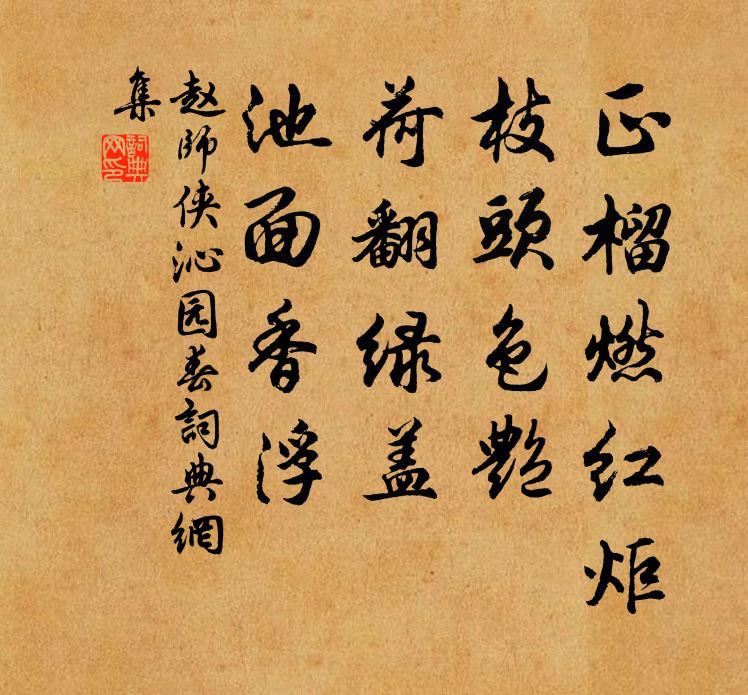 正榴燃红炬
枝頭色艶
荷翻绿盖
池面香浮
赵師侠沁园春詞典網
集
詞典
网印